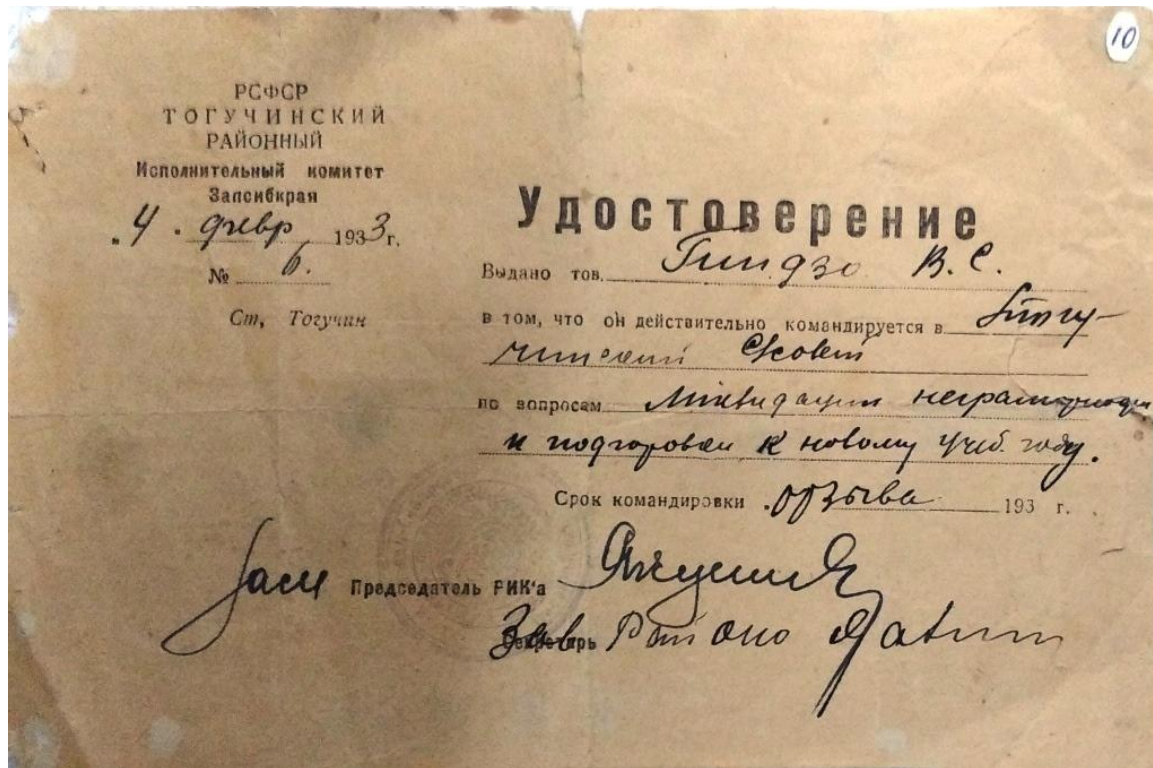 10
РСФСР
ТОГУЧИНСКИЙ
РАЙОННЫЙ
Исполнительный комитет
Запсибкрая
"4" февр 1933 г.
№ 6.
Ст, Тогучин
Удостоверение
Выдано тов. Гиндзо В. С.
в том, что он действительно командируется в
Совет
по вопросам Ликвидации неграмотности
и подготовки к новому учеб. году.
Срок командировки отзыва 193 г.
Зам Председатель РИК'а
Секретарь Зав Районо